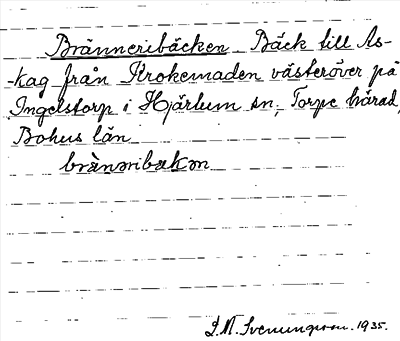 Bränneribäcken Bäck till As-
-kag från Krokemaden västeröver på
Ingelstorp i Hjärtum sn, Torpe härad,
Bohus län
brànəribækən
S. A. Svenungsson. 1935.